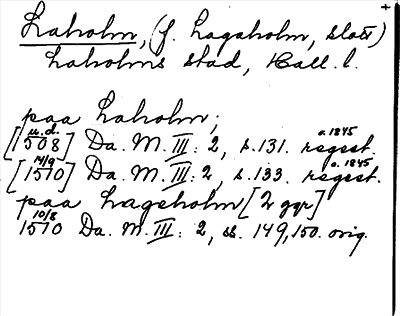 Laholm, (f. Lagaholm, slott) +
Laholms stad, Hall. l.
paa Laholm;
u.d. c. 1845
[1508] Da. M. III: 2, s. 131. regest.
14/9 c. 1845
[1570] Da. M. III: 2, s. 133. regest.
paa Lageholm [2 ggr]
10/8
1570 Da. M. III: 2, ss. 149, 150. orig.